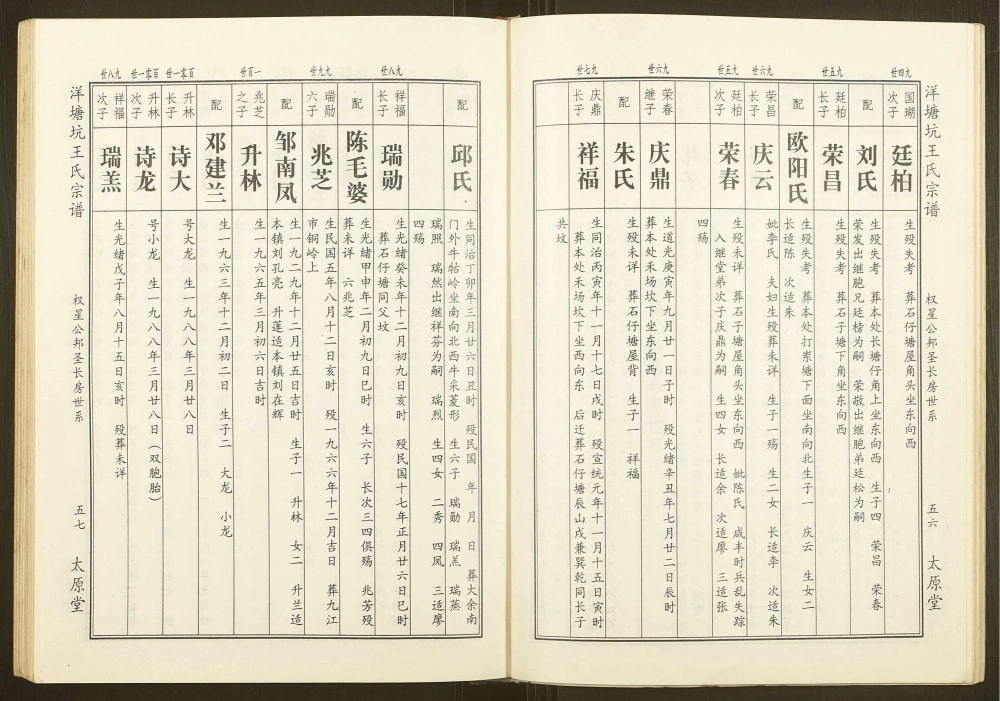 洋塘坑王氏宗谱
权星公邦圣长房世系
五六
太原堂
九四世
国瑚
次子
廷柏
生殁失考 葬石仔塘屋角头坐东向西
配
刘氏
生殁失考 葬本处长塘仔角上坐东向西 生子四 荣昌 荣春
荣发出继胞兄廷榜为嗣 荣敬出继胞弟廷松为嗣
九五世
廷柏
长子
荣昌
生殁失考 葬石子塘下角坐东向西
配
欧阳氏
生殁失考 葬本处打祟塘下面坐南向北生子一 庆云 生女二
长适陈 次适朱
九六世
荣昌
长子
庆云
妣李氏 夫妇生殁葬未详 生子一殇 生二女 长适李 次适朱
九五世
廷柏
次子
荣春
生殁未详 葬石子塘屋角头坐东向西 妣陈氏 咸丰时兵乱失踪
入继堂弟次子庆鼎为嗣 生四女 长适余 次适廖 三适张
四殇
九六世
荣春
继子
庆鼎
生道光庚寅年九月廿一日子时 殁光绪辛丑年七月廿二日辰时
葬本处禾场坎下坐东向西
配
朱氏
生殁未详 葬石仔塘屋背 生子一 祥福
九七世
庆鼎
长子
祥福
生同治丙寅年十一月十七日戌时 殁宣统元年十一月十五日寅时
葬本处禾场坎下坐西向东 后迁葬石仔塘辰山戌兼巽乾同长子
共坟
配
邱氏
生同治丁卯年三月廿六日丑时 殁民国 年 月 日 葬大余南
门外牛牯岭坐南向北西牛采菱形 生六子 瑞勋 瑞羔 瑞蒸
瑞照 瑞然出继祥芬为嗣 瑞烈 生四女 二秀 四凤 三适廖
四殇
九八世
祥福
长子
瑞勋
生光绪癸未年十二月初九日亥时 殁民国十七年正月廿六日巳时
葬石仔塘同父坟
配
陈毛婆
生光绪甲申年二月初九日巳时 生六子 长次三四俱殇 兆芳殁
葬未详 六兆芝
九九世
瑞勋
六子
兆芝
生民国五年八月十二日亥时 殁一九六六年十二月吉日 葬九江
市铜岭上
配
邹南凤
生一九二九年十二月廿五日吉时 生子一 升林 女二 升兰适
本镇刘孔亮 升莲适本镇刘在辉
一百世
兆芝
之子
升林
生一九六五年三月初六日吉时
配
邓建兰
生一九六三年十二月初二日 生子二 大龙 小龙
百零一世
升林
长子
诗大
号大龙 生一九八八年三月廿八日
百零一世
升林
次子
诗龙
号小龙 生一九八八年三月廿八日（双胞胎）
九八世
祥福
次子
瑞羔
生光绪戊子年八月十五日亥时 殁葬未详
洋塘坑王氏宗谱
权星公邦圣长房世系
五七
太原堂